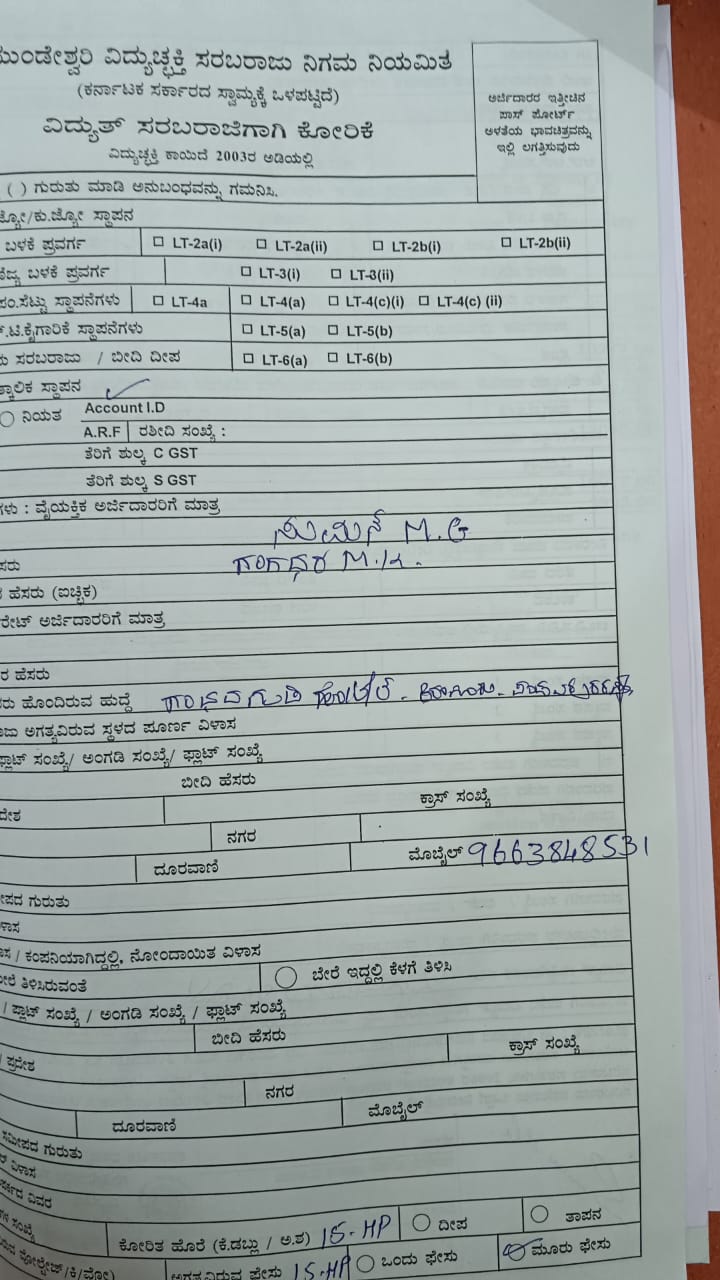 ಮುಂಡೇಶ್ವರಿ ವಿದ್ಯುಚ್ಛಕ್ತಿ ಸರಬರಾಜು ನಿಗಮ ನಿಯಮಿತ
(ಕರ್ನಾಟಕ ಸರ್ಕಾರದ ಸ್ವಾಮ್ಯಕ್ಕೆ ಒಳಪಟ್ಟಿದೆ)
ವಿದ್ಯುತ್ ಸರಬರಾಜಿಗಾಗಿ ಕೋರಿಕೆ
ವಿದ್ಯುಚ್ಛಕ್ತಿ ಕಾಯಿದೆ 2003ರ ಅಡಿಯಲ್ಲಿ
ಅರ್ಜಿದಾರರ ಇತ್ತೀಚಿನ
ಪಾಸ್ ಪೋರ್ಟ್
ಅಳತೆಯ ಭಾವಚಿತ್ರವನ್ನು
ಇಲ್ಲಿ ಲಗತ್ತಿಸುವುದು
( ) ಗುರುತು ಮಾಡಿ ಅನುಬಂಧವನ್ನು ಗಮನಿಸಿ.
ಜ್ಯೋ/ಕು.ಜ್ಯೋ ಸ್ಥಾಪನ
ಬಳಕೆ ಪ್ರವರ್ಗ LT-2a(i) LT-2a(ii) LT-2b(i) LT-2b(ii)
ಬಳಕೆ ಪ್ರವರ್ಗ LT-3(i) LT-3(ii)
ಪಂ.ಸೆಟ್ಟು ಸ್ಥಾಪನೆಗಳು LT-4a LT-4(a) LT-4(c)(i) LT-4(c) (ii)
.ಟಿ.ಕೈಗಾರಿಕೆ ಸ್ಥಾಪನೆಗಳು LT-5(a) LT-5(b)
ಸರಬರಾಜು / ಬೀದಿ ದೀಪ LT-6(a) LT-6(b)
ತ್ಕಾಲಿಕ ಸ್ಥಾಪನ
ನಿಯತ Account I.D
A.R.F ರಶೀದಿ ಸಂಖ್ಯೆ :
ತೆರಿಗೆ ಶುಲ್ಕ C GST
ತೆರಿಗೆ ಶುಲ್ಕ S GST
ಗಳು : ವೈಯಕ್ತಿಕ ಅರ್ಜಿದಾರರಿಗೆ ಮಾತ್ರ
M.G
ಸರು ಗಂಗಾಧರ M.K.
ಹೆಸರು (ಐಚ್ಛಿಕ)
ರೇಟ್ ಅರ್ಜಿದಾರರಿಗೆ ಮಾತ್ರ
ರ ಹೆಸರು
ರು ಹೊಂದಿರುವ ಹುದ್ದೆ
ಅಗತ್ಯವಿರುವ ಸ್ಥಳದ ಪೂರ್ಣ ವಿಳಾಸ
ಪ್ಲಾಟ್ ಸಂಖ್ಯೆ/ ಅಂಗಡಿ ಸಂಖ್ಯೆ/ ಫ್ಲಾಟ್ ಸಂಖ್ಯೆ
ಬೀದಿ ಹೆಸರು
ದೇಶ ಕ್ರಾಸ್ ಸಂಖ್ಯೆ
ನಗರ
ದೂರವಾಣಿ ಮೊಬೈಲ್ 9663848531
ೀಪದ ಗುರುತು
ಳಾಸ
ಸ / ಕಂಪನಿಯಾಗಿದ್ದಲ್ಲಿ, ನೋಂದಾಯಿತ ವಿಳಾಸ
ೇಲೆ ತಿಳಿಸಿರುವಂತೆ ಬೇರೆ ಇದ್ದಲ್ಲಿ ಕೆಳಗೆ ತಿಳಿಸಿ
/ ಪ್ಲಾಟ್ ಸಂಖ್ಯೆ / ಅಂಗಡಿ ಸಂಖ್ಯೆ / ಫ್ಲಾಟ್ ಸಂಖ್ಯೆ
ಬೀದಿ ಹೆಸರು
/ ಪ್ರದೇಶ ಕ್ರಾಸ್ ಸಂಖ್ಯೆ
ನಗರ
ದೂರವಾಣಿ ಮೊಬೈಲ್
ಸಮೀಪದ ಗುರುತು
ವಿಳಾಸ
ವಿವರ
ಸಂಖ್ಯೆ ಕೋರಿತ ಹೊರೆ (ಕೆ.ಡಬ್ಲು / ಅ.ಶ) 15-HP ದೀಪ ತಾಪನ
ಅಗತ್ಯವಿರುವ ಫೇಸು 15-HP ಒಂದು ಫೇಸು ಮೂರು ಫೇಸು